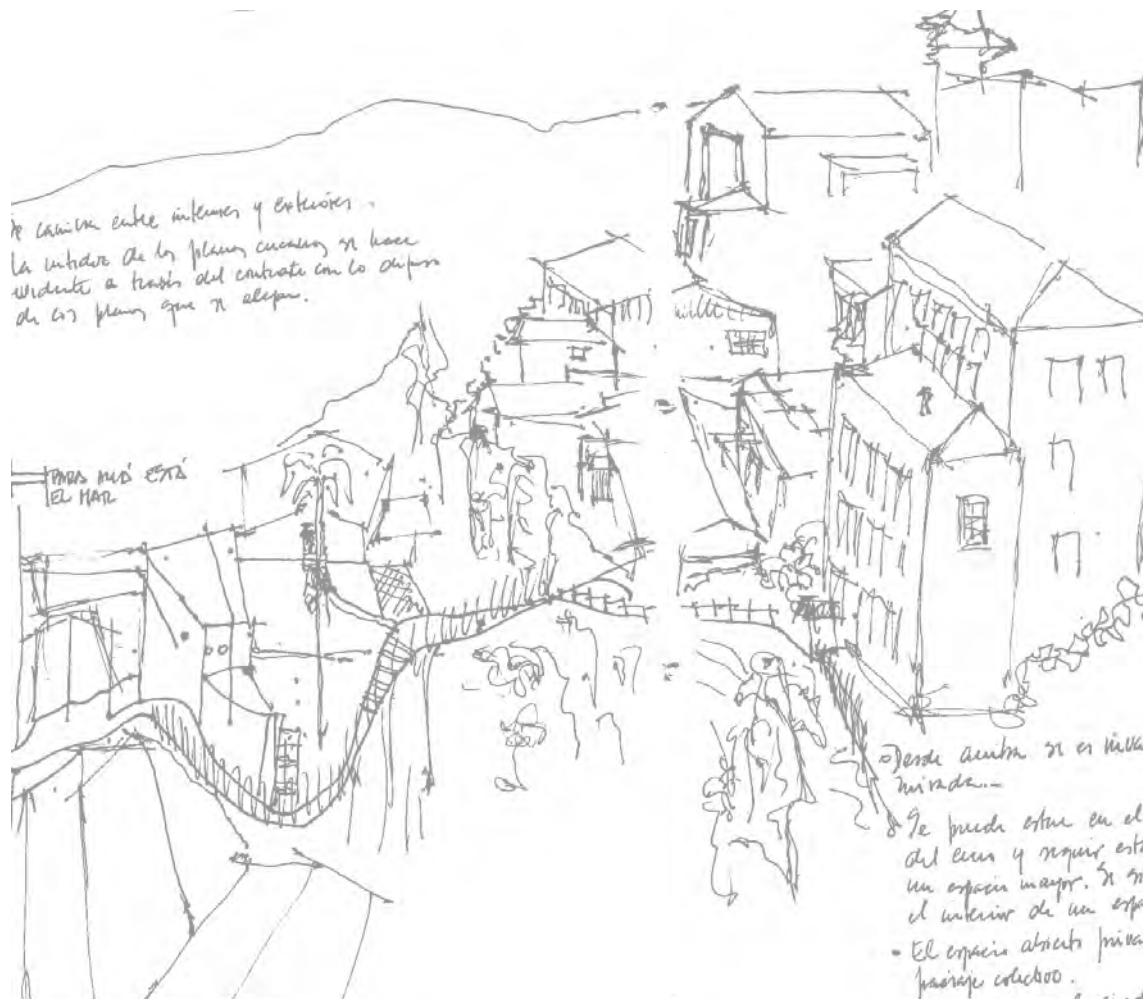 Se camina entre interiores y exteriores.
La nitidez de los planos cercanos se hace
evidente a través del contraste con lo difuso
de los planos que se alejan.
PARA ALLÁ ESTÁ
EL MAR
Desde arriba se es
mirada.-
Se puede estar en el
del cerro y seguir
un espacio mayor. Se
el interior de un
• El espacio abierto
paisaje colectivo.